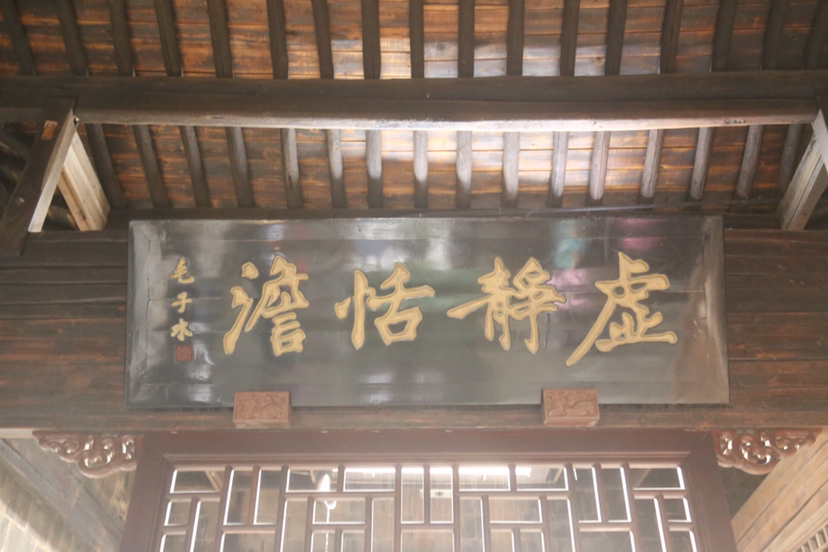 虛靜恬澹
毛子水